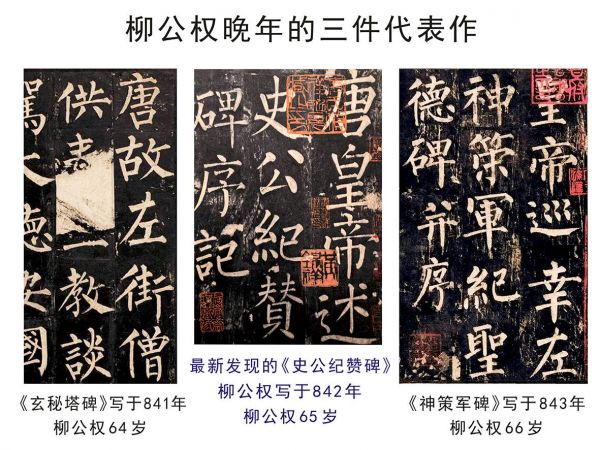 柳公权晚年的三件代表作
唐故左街僧
供教談
駕大德安國
《玄秘塔碑》写于841年
柳公权64岁
唐皇帝述
史公紀賛
碑序記
最新发现的《史公纪赞碑》
柳公权写于842年
柳公权65岁
皇帝巡幸左
神策軍紀聖
德碑并序
《神策军碑》写于843年
柳公权66岁